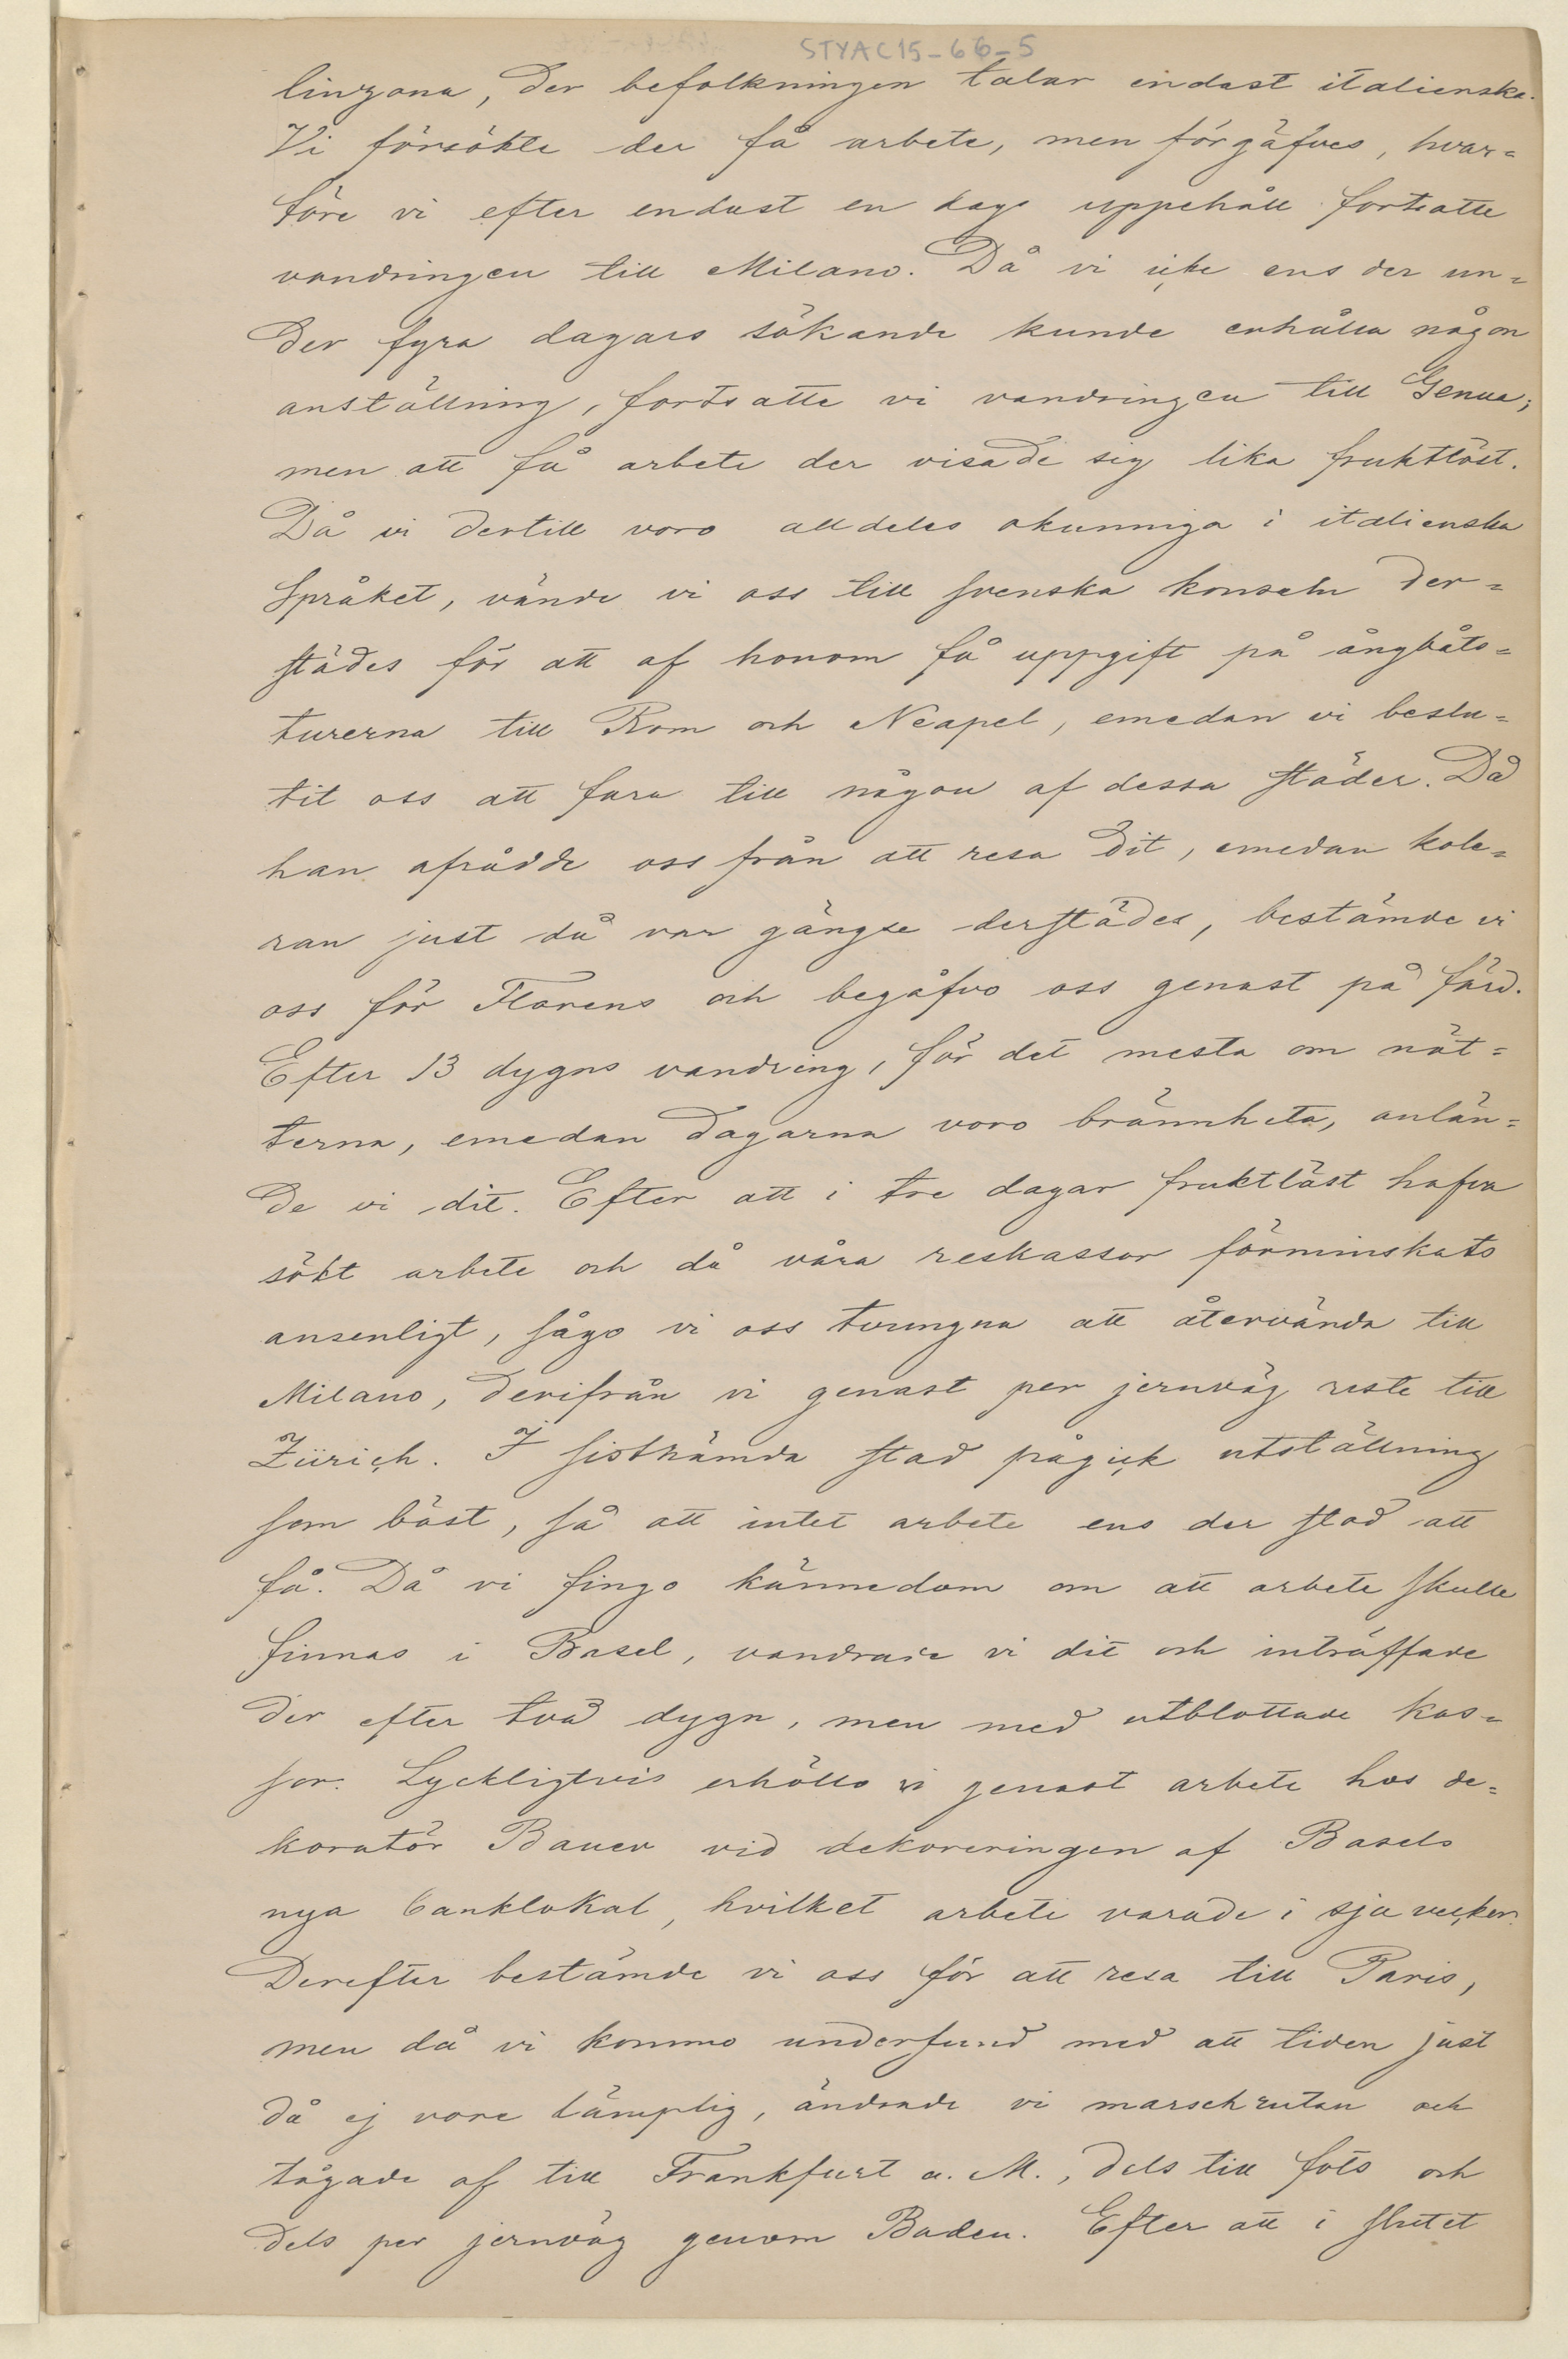 STYAC15-66-5
linzona, der befolkningen talar endast italienska.
Vi försökte der få arbete, men förgäfves, hvar=
före vi efter endast en dags uppehåll fortsatte
vandringen till Milano. Då vi icke ens der un=
der fyra dagars sökande kunde erhålla någon
anställning, fortsatte vi vandringen till Genua;
men att få arbete der visade sig lika fruktlöst.
Då vi dertill voro alldeles okunniga i italienska
språket, vände vi oss till svenska konseln der=
städes för att af honom få uppgift på ångbåts=
turerna till Rom och Neapel, emedan vi beslu=
tit oss att fara till någon af dessa städer. Då
han afrådde oss från att resa dit, emedan kole=
ran just då var gängse derstädes, bestämde vi
oss för Florens och begåfvo oss genast på färd.
Efter 13 dygns vandring, för det mesta om nät=
terna, emedan dagarna voro brännheta, anlän=
de vi dit. Efter att i tre dagar fruktlöst hafva
sökt arbete och då våra reskassor förminskats
ansenligt, sågo vi oss tvungna att återvända till
Milano, derifrån vi genast per jernväg reste till
Zürich. I sistnämda stad pågick utställning
som bäst, så att intet arbete ens der stod att
få. Då vi fingo kännedom om att arbete skulle
finnas i Basel, vandrade vi dit och inträffade
der efter två dygn, men med utblottade kas=
sor. Lyckligtvis erhöllo vi genast arbete hos de=
koratör Bauer vid dekoreringen af Basels
nya banklokal, hvilket arbete varade i sju veckor.
Derefter bestämde vi oss för att resa till Paris,
men då vi kommo underfund med att tiden just
då ej vore lämplig, ändrade vi marschrutan och
tågade af till Frankfurt a. M., dels till fots och
dels per jernväg genom Baden. Efter att i slutet